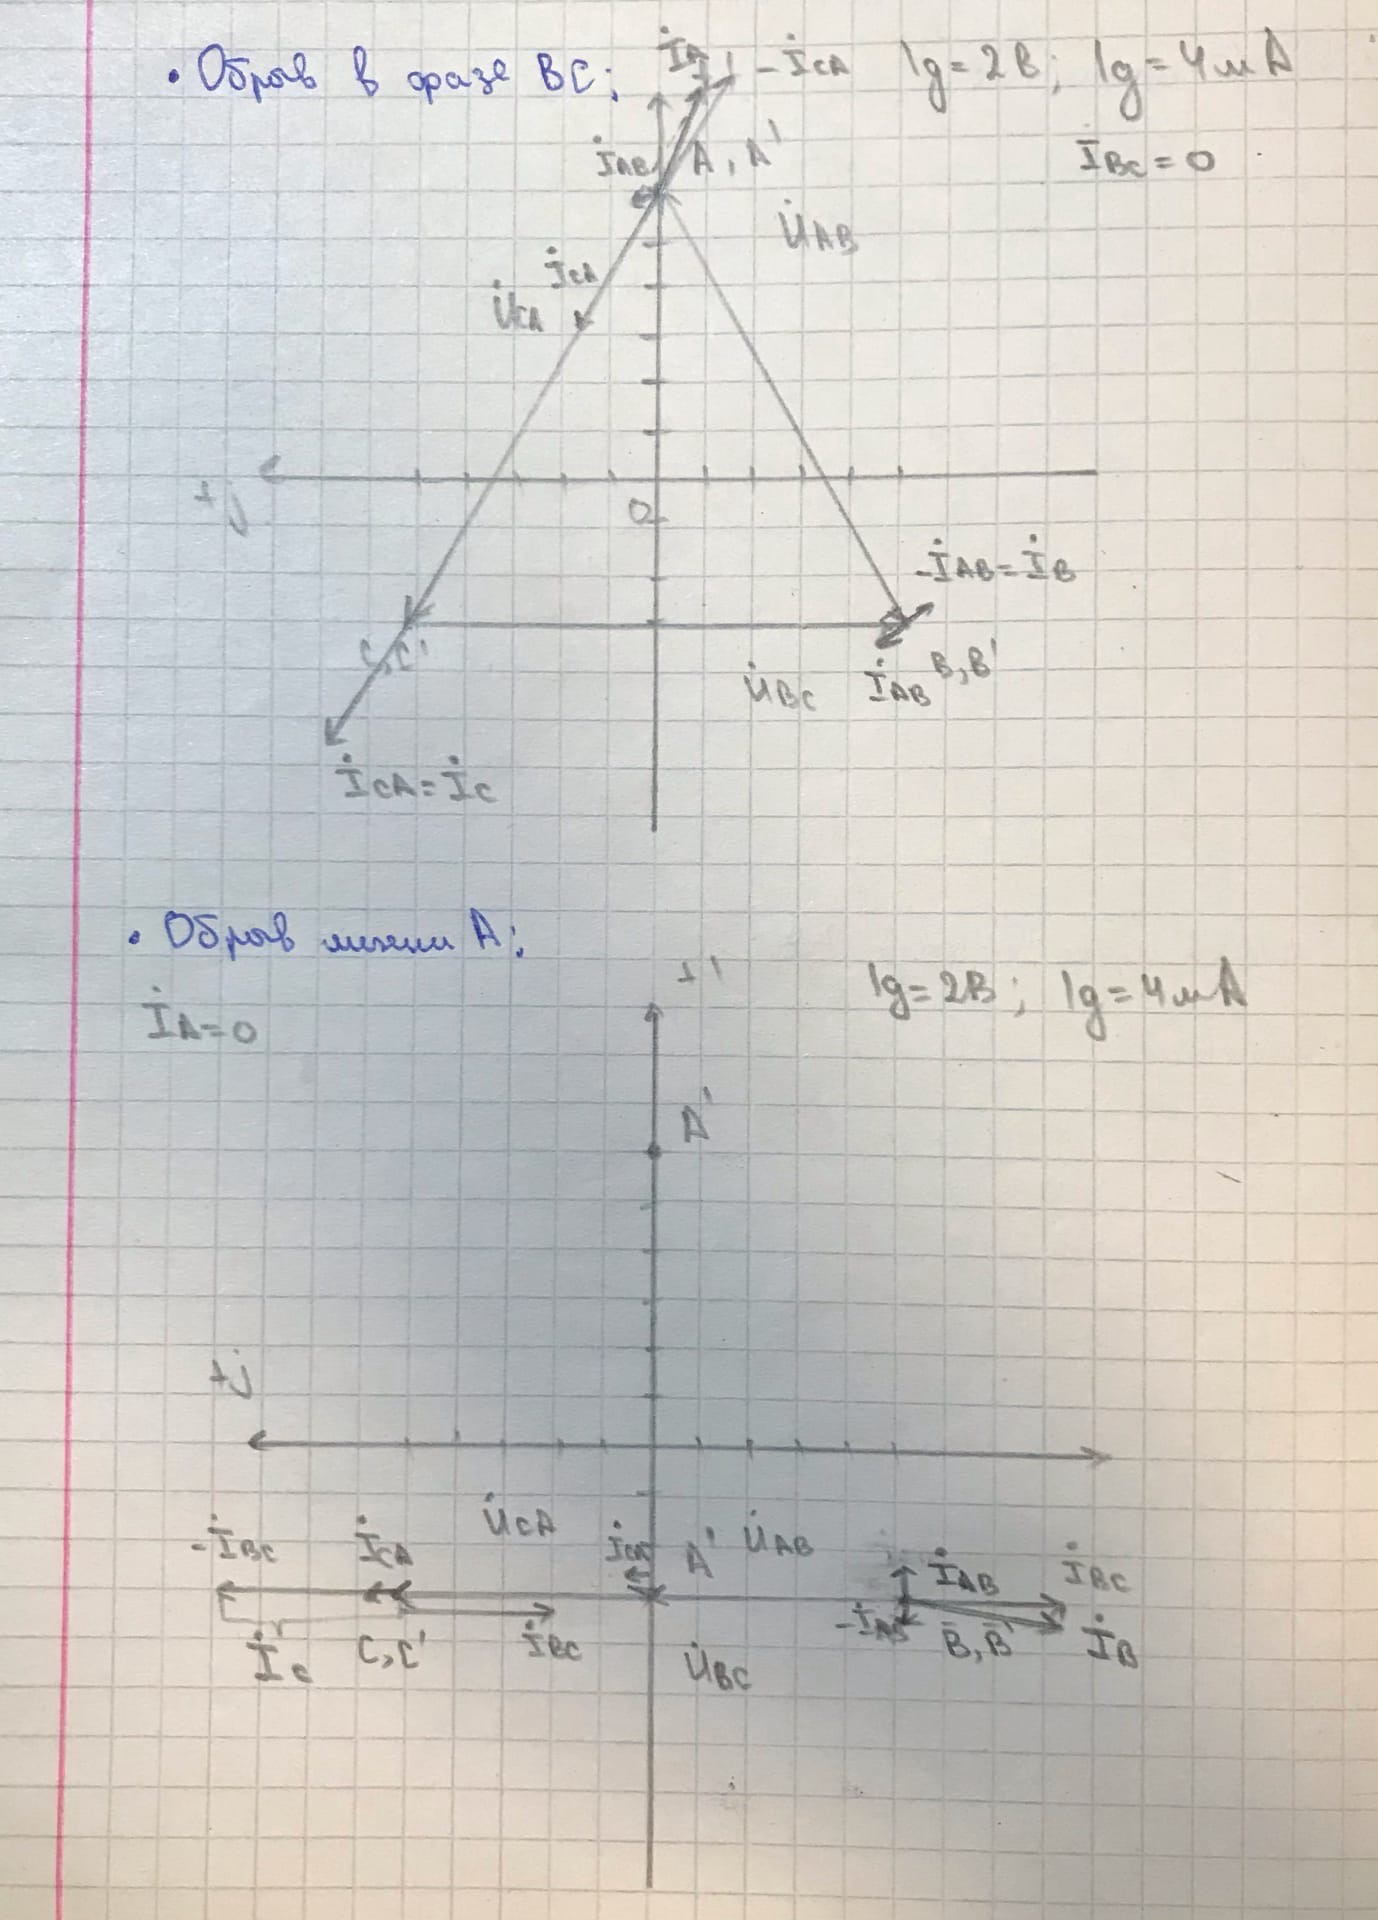 • Обрыв в фазе BC; İA +1 -İCA 1g=2В; 1g=4мА
İAB A, A' İBC=0
U̇AB
İCA
U̇CA
+j
0
-İAB=İB
C,C'
U̇BC İAB B,B'
İCA=İC
• Обрыв линии A;
+1 1g=2В; 1g=4мА
İA=0
A'
+j
U̇CA U̇AB
-İBC İCA İCA A' İAB İBC
İC C,C' İBC U̇BC -İAB B,B' İB